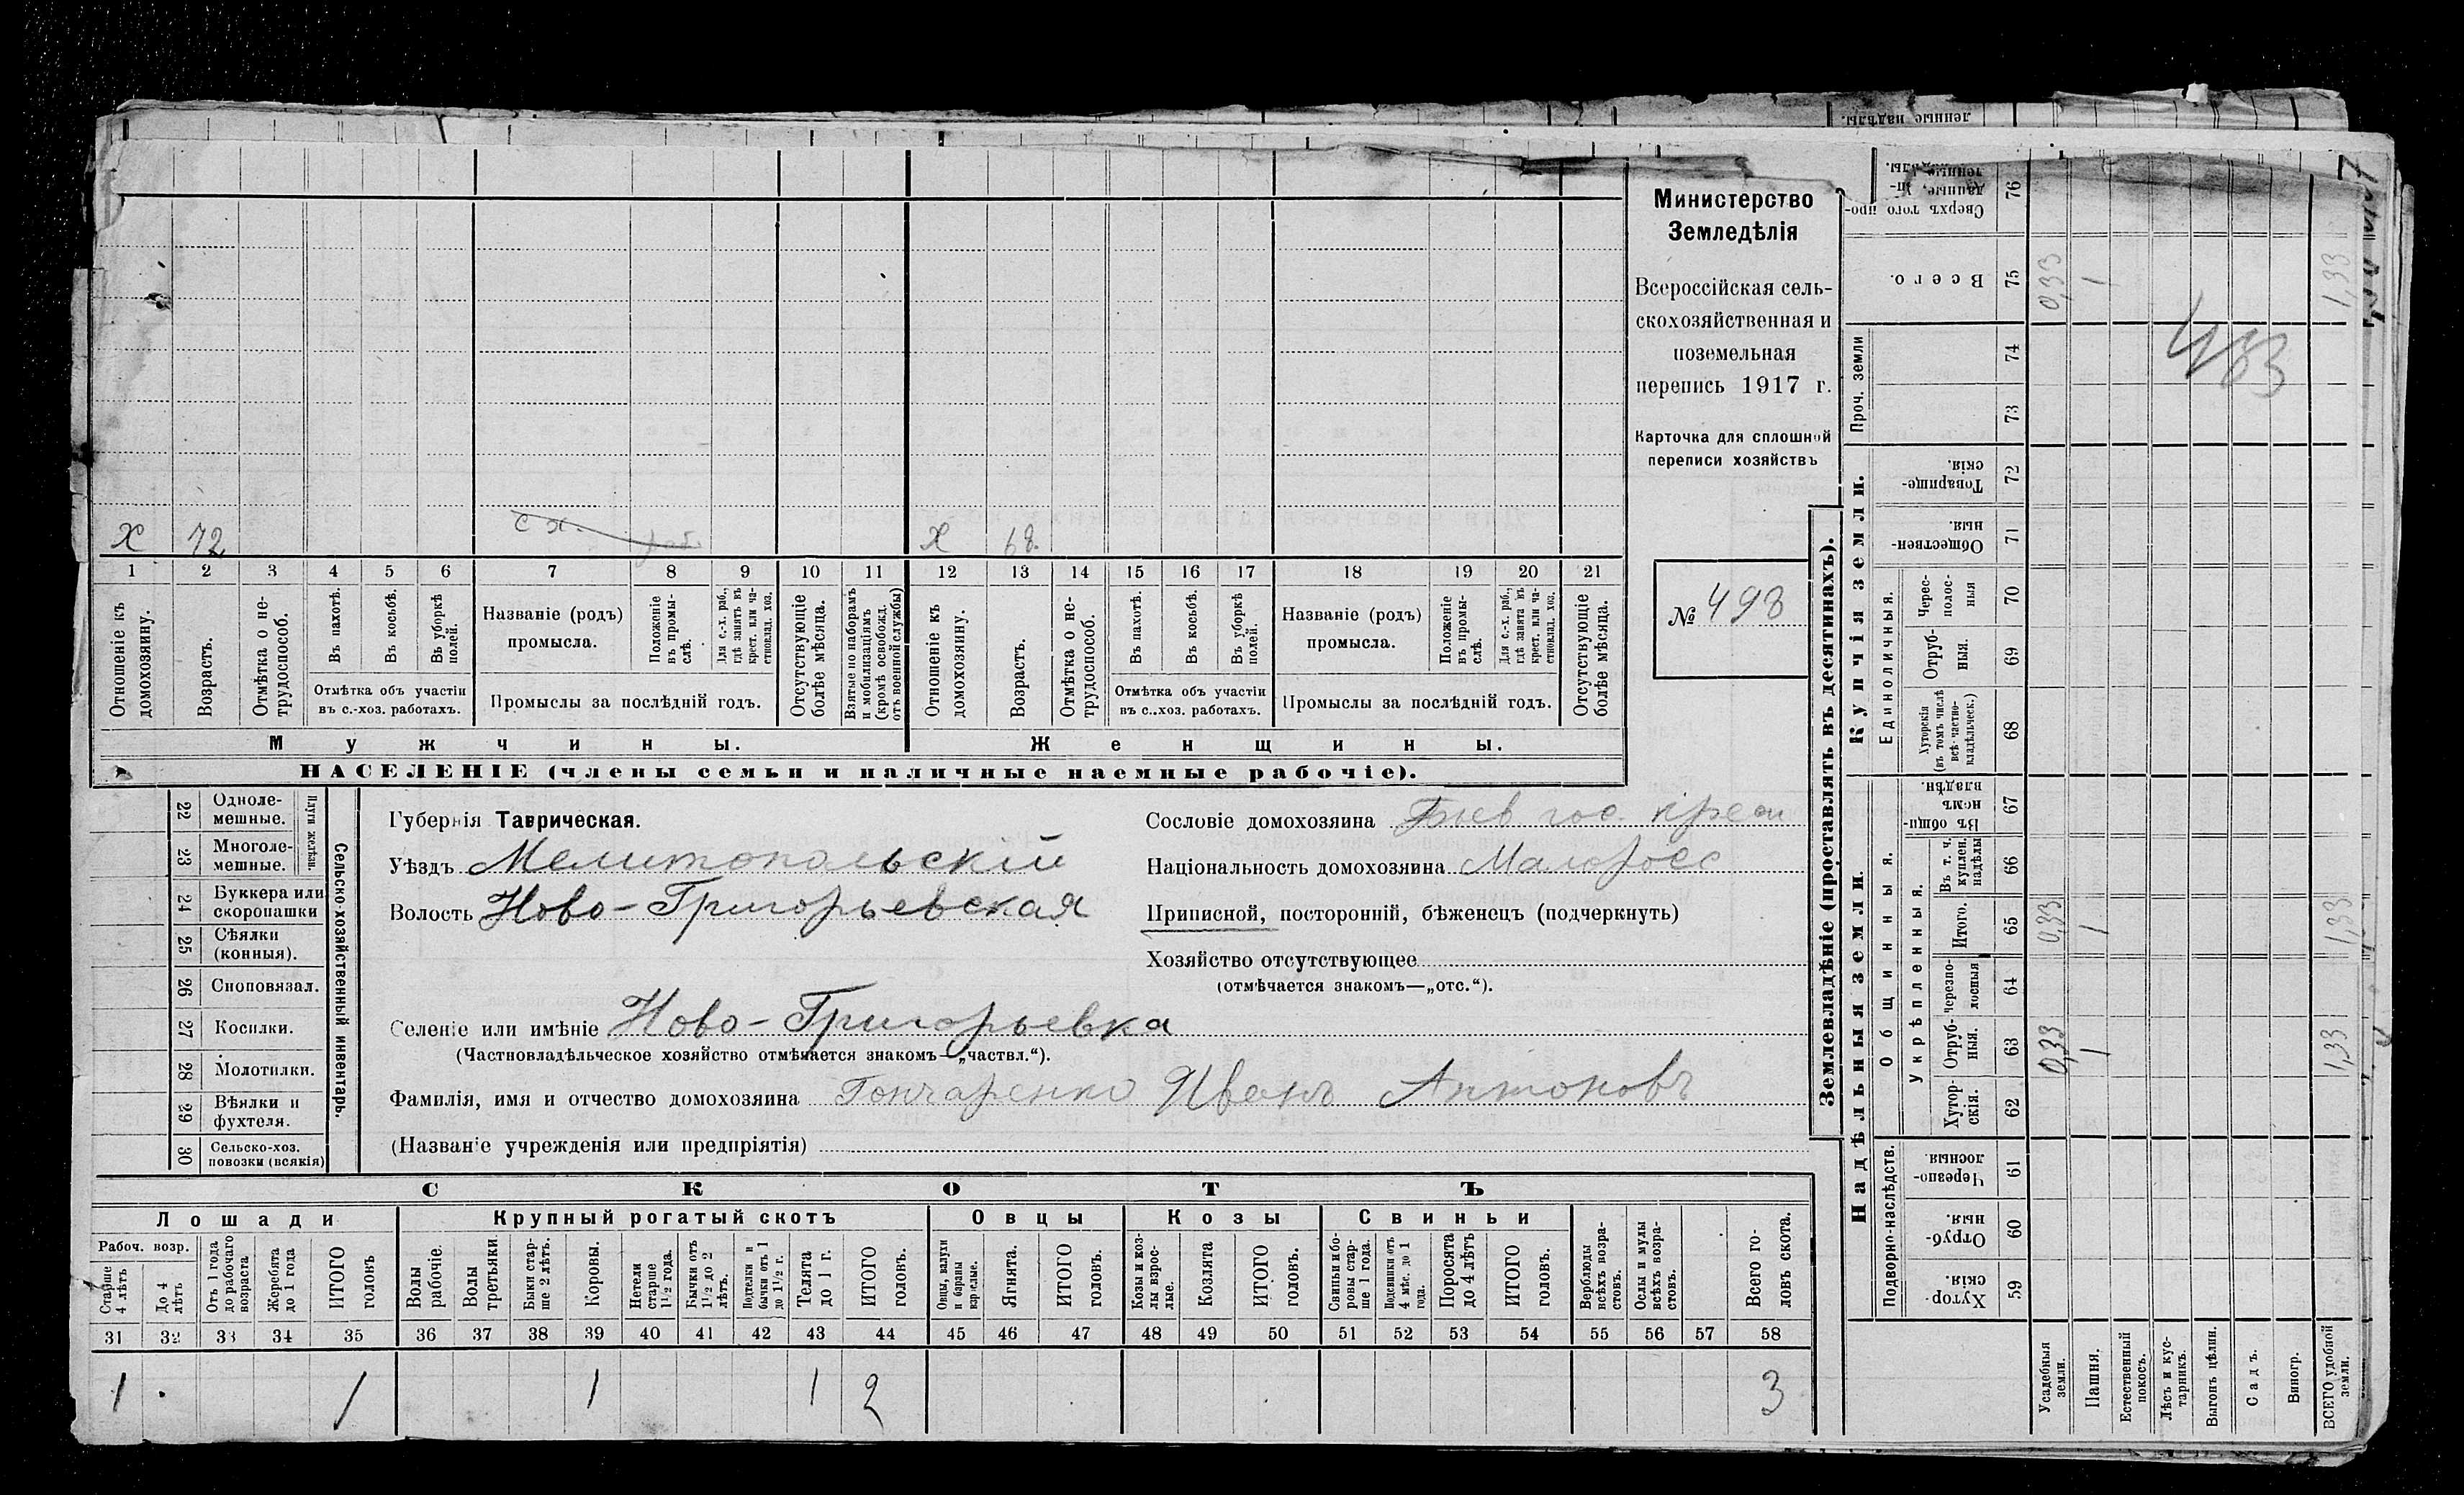 Министерство
Земледѣлія
Всероссійская сель-
скохозяйственная и
поземельная
перепись 1917 г.
Карточка для сплошной
переписи хозяйствъ
№ 498
Х 72 с х. раб. Х 68.
1 2 3 4 5 6 7 8 9 10 11 12 13 14 15 16 17 18 19 20 21
Отношеніе къ домохозяину.
Возрастъ.
Отмѣтка о не-трудоспособ.
Въ пахотѣ.
Въ косьбѣ.
Въ уборкѣ полей.
Отмѣтка объ участіи
въ с.-хоз. работахъ.
Названіе (родъ)
промысла.
Положеніе въ промы-слѣ.
Для с.-х. раб., гдѣ занятъ въ крест. или ча-стновлад. хоз.
Промыслы за послѣдній годъ.
Отсутствующіе болѣе мѣсяца.
Взятые по наборамъ и мобилизаціямъ (кромѣ освобожд. отъ военной службы)
Отношеніе къ домохозяину.
Возрастъ.
Отмѣтка о не-трудоспособ.
Въ пахотѣ.
Въ косьбѣ.
Въ уборкѣ полей.
Отмѣтка объ участіи
въ с..хоз. работахъ.
Названіе (родъ)
промысла.
Положеніе въ промы-слѣ.
Для с.-х. раб., гдѣ занята въ крест. или ча-стновлад. хоз.
Промыслы за послѣдній годъ.
Отсутствующіе болѣе мѣсяца.
Мужчины.
Женщины.
НАСЕЛЕНІЕ (члены семьи и наличные наемные рабочіе).
22 Одноле-мешные.
23 Многоле-мешные.
Плуги желѣзн.
24 Буккера или скоропашки
25 Сѣялки (конныя).
26 Сноповязал.
27 Косилки.
28 Молотилки.
29 Вѣялки и фухтеля.
30 Сельско-хоз. повозки (всякія)
Сельско-хозяйственный инвентарь.
Губернія Таврическая.
Уѣздъ Мелитопольскій
Волость Ново-Григорьевская
Сословіе домохозяина Быв гос. крест
Національность домохозяина Малоросс
Приписной, посторонній, бѣженецъ (подчеркнуть)
Хозяйство отсутствующее
(отмѣчается знакомъ—„отс.“).
Селеніе или имѣніе Ново-Григорьевка
(Частновладѣльческое хозяйство отмѣчается знакомъ—„частвл.“).
Фамилія, имя и отчество домохозяина Гончаренко Иванъ Антоновъ
(Названіе учрежденія или предпріятія)
СКОТЪ
Лошади
Крупный рогатый скотъ
Овцы
Козы
Свиньи
Рабоч. возр.
Старше 4 лѣтъ
До 4 лѣтъ
Отъ 1 года до рабочаго возраста
Жеребята до 1 года
ИТОГО головъ
Волы рабочіе.
Волы третьяки.
Быки стар-ше 2 лѣтъ.
Коровы.
Нетели старше 1½ года.
Бычки отъ 1½ до 2 лѣтъ.
Подтелки и бычки отъ 1 до 1½ г.
Телята до 1 г.
ИТОГО головъ.
Овцы, валухи и бараны взрослые.
Ягнята.
ИТОГО головъ.
Козы и коз-лы взрос-лые.
Козлята
ИТОГО головъ.
Свиньи и бо-ровы стар-ше 1 года.
Подсвинки отъ 4 мѣс. до 1 года.
Поросята до 4 лѣтъ
ИТОГО головъ.
Верблюды всѣхъ возра-стовъ.
Ослы и мулы всѣхъ возра-стовъ.
Всего го-ловъ скота.
31 32 33 34 35 36 37 38 39 40 41 42 43 44 45 46 47 48 49 50 51 52 53 54 55 56 57 58
1 1 1 1 2 3
Землевладѣніе (проставлять въ десятинахъ).
Купчія земли.
Надѣльныя земли.
Проч. земли
Единоличныя.
Общинныя.
Укрѣпленныя.
Подворно-наслѣдств.
ленные надѣлы.
Сверхъ того про-
76
Всего. 75 0,33 1 1,33
74
73
483
Товарище-скія. 72
Обществен-ныя. 71
Черес-полос-ныя 70
Отруб-ныя. 69
Хуторскія (въ томъ числѣ всѣ частно-владѣльческ.) 68
Въ общин-номъ владѣн. 67
Въ т. ч. куплен. надѣлы 66
Итого. 65 0,33 1 1,33
Черезпо-лосныя 64
Отруб-ныя. 63 0,33 1 1,33
Хутор-скія. 62
Черезпо-лосныя. 61
Отруб-ныя. 60
Хутор-скія. 59
Усадебныя земли.
Пашня.
Естественный покосъ.
Лѣсъ и кус-тарникъ.
Выгонъ цѣлин.
Садъ.
Виногр.
ВСЕГО удобной земли.